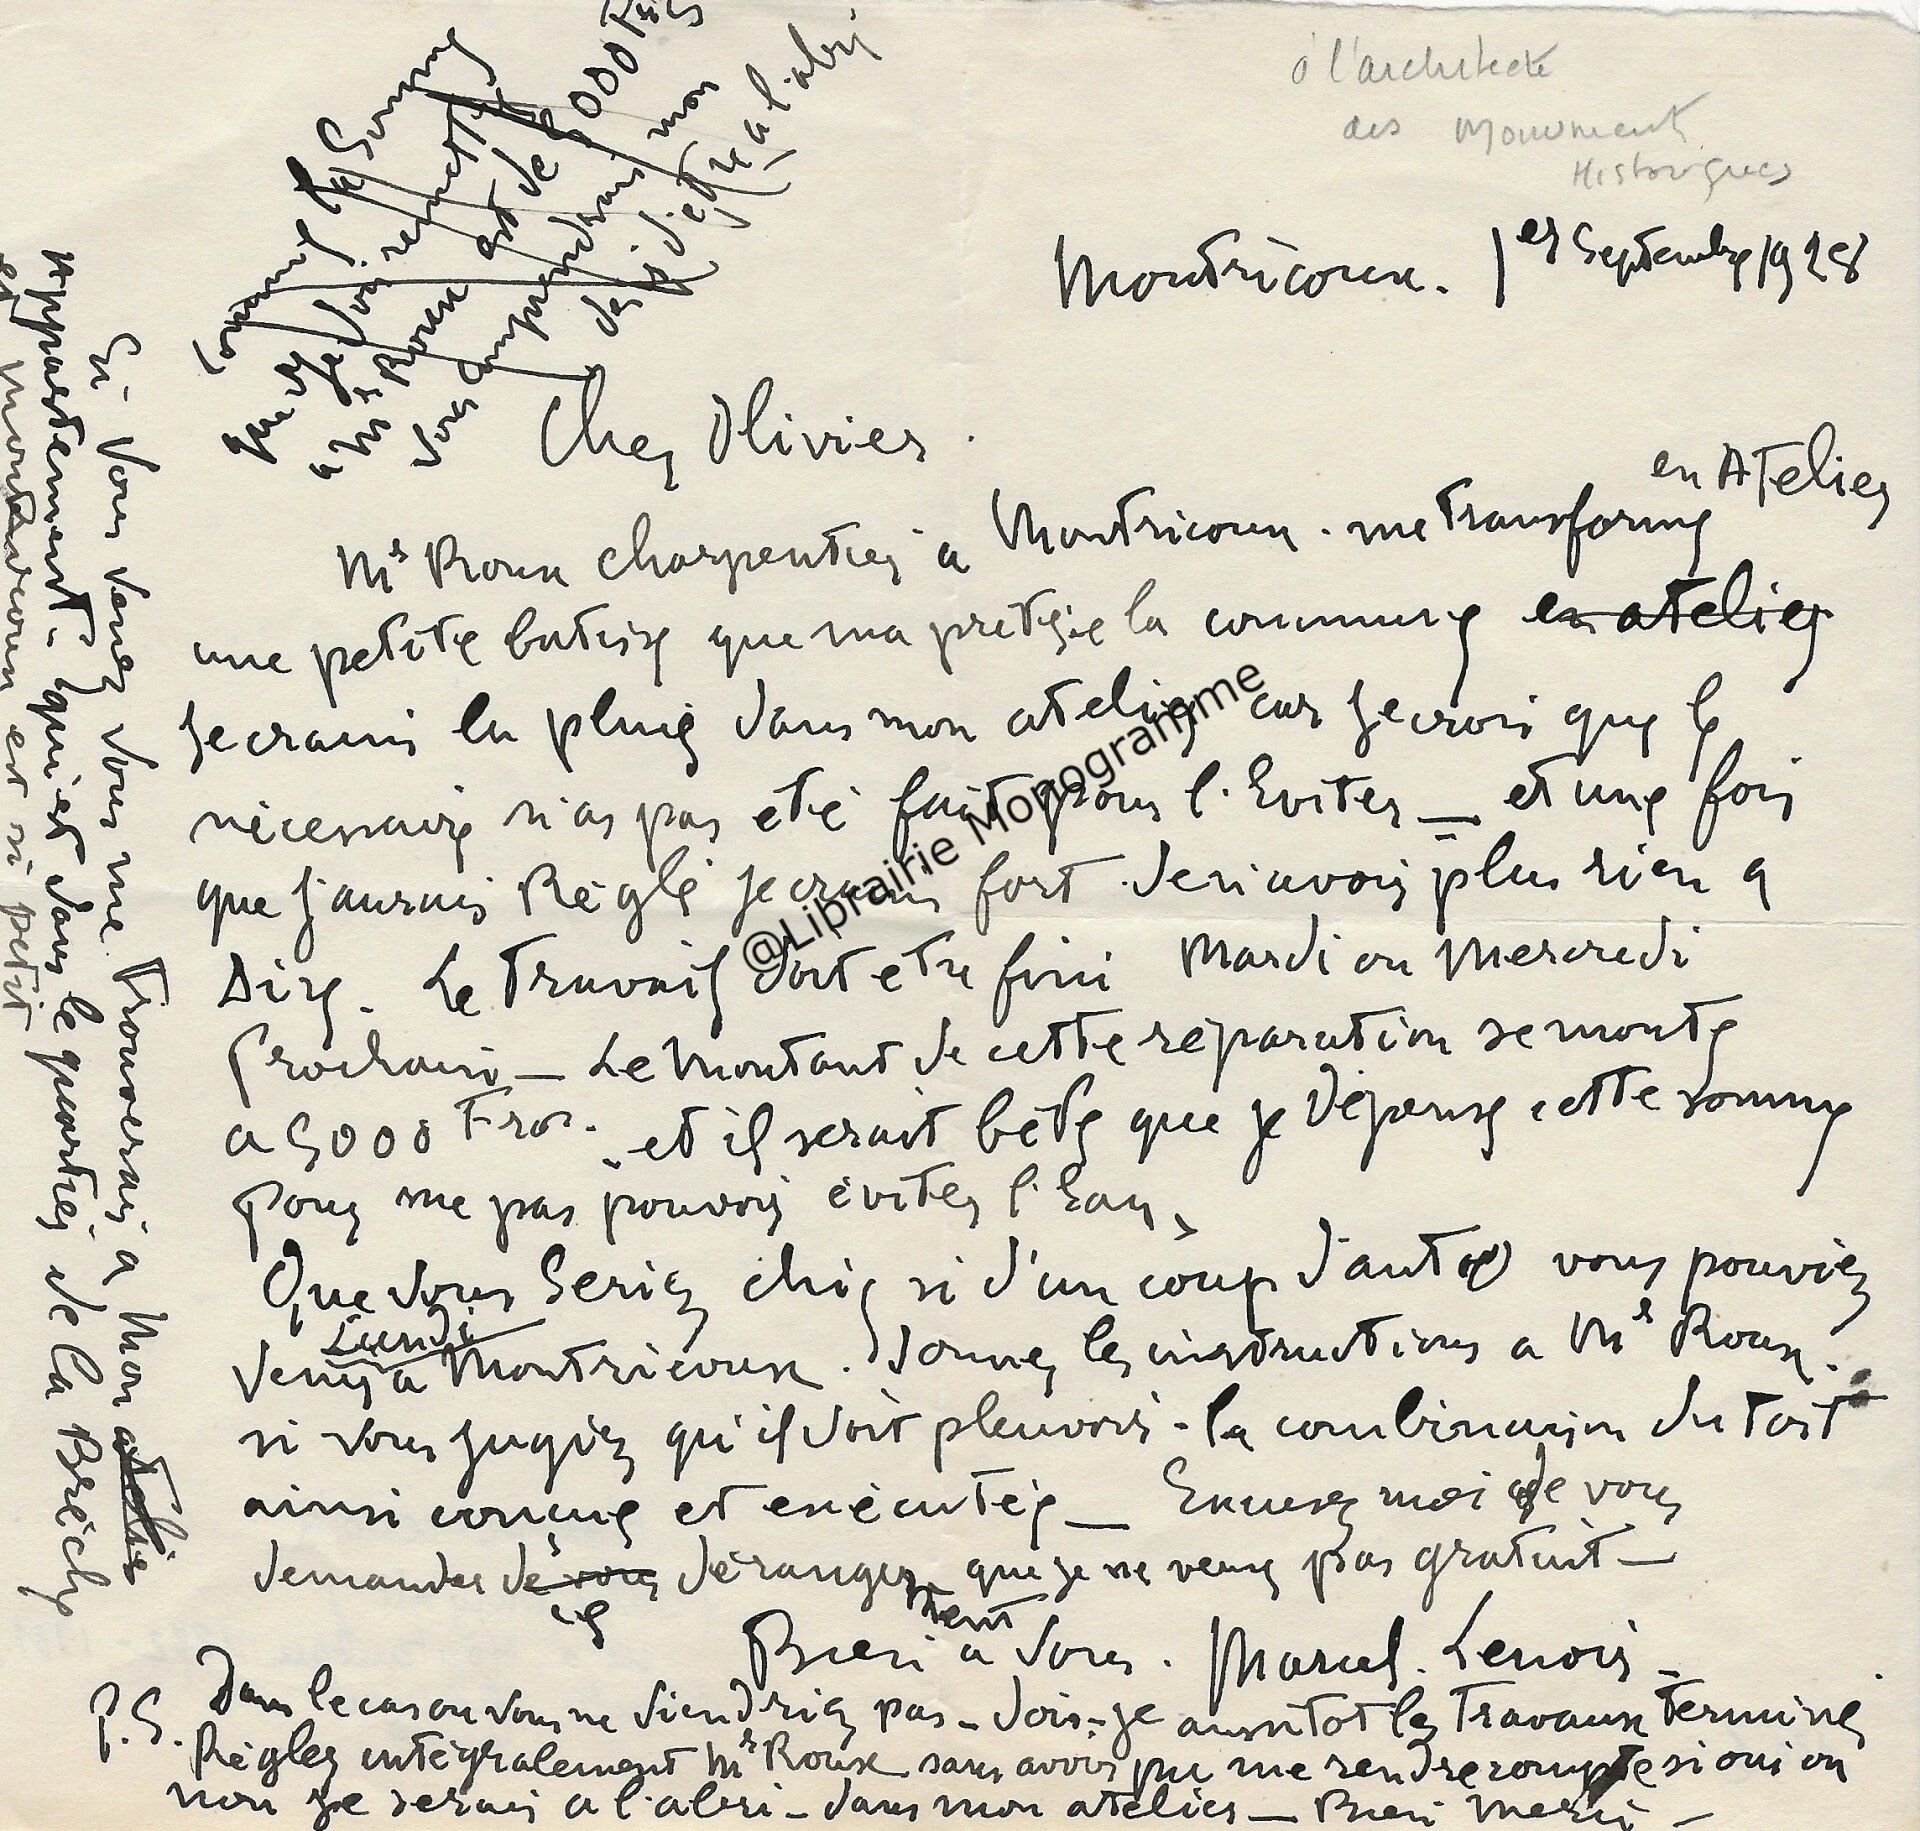 à l'architecte
des Monuments
Historiques
Montricoux. 1er Septembre 1928
Cher Olivier.
Mr Roux charpentier a Montricoux. me transforme en Atelier
une petite batise que ma pretée la commune en atelier
Je crains la pluie dans mon atelier car Je crois que le
nécessaire n'as pas eté fait pour l'Eviter — et une fois
que J'aurais Réglé Je crains fort de n'avoir plus rien a
Dire. Le Travail doit etre fini Mardi ou Mercredi
Prochain — Le Montant de cette réparation se monte
a 5000 Frcs. et il serait bête que je Dépense cette somme
pour ne pas pouvoir éviter l'Eau,
Que vous seriez chic si d'un coup d'auto vous pouviez
venir Lundi a Montricoux. donner les instructions a Mr Roux.
si vous jugiez qu'il doit pleuvoir - la combinaison du toit
ainsi conçue et exécutée — Excusez moi de vous
demander ce dérangement que je ne veux pas gratuit —
Bien a vous. Marcel. Lenoir —
P.S. Dans le cas ou vous ne viendriez pas — dois-je aussitot les travaux terminés
Régler intégralement Mr Roux sans avoir pu me rendre compte si oui ou
non je serais a l'abri — dans mon atelier — Bien Merci —
Si vous venez vous me trouverais a mon atelier
Appartement - qui est dans le quartier de la Brèche
et Montricoux est si petit
Comme la Somme
que je dois remettre
a Mr Roux est de 5000 Frcs
vous comprendrais mon
desir d'etre a l'abri
@Librairie Monogramme